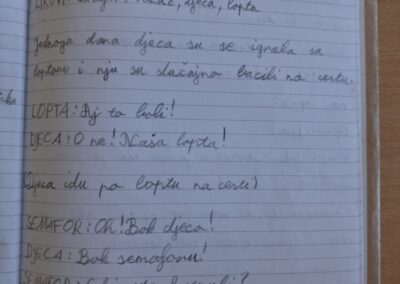 djeca, lopta
Jednoga dana djeca su se igrala sa
loptom i nju su slučajno bacili na cestu.
LOPTA: Aj to boli!
DJECA: O ne! Naša lopta!
(Djeca idu po loptu na cesti)
SEMAFOR: Oh! Bok djeco!
DJECA: Bok semaforu!
SEMAFOR: